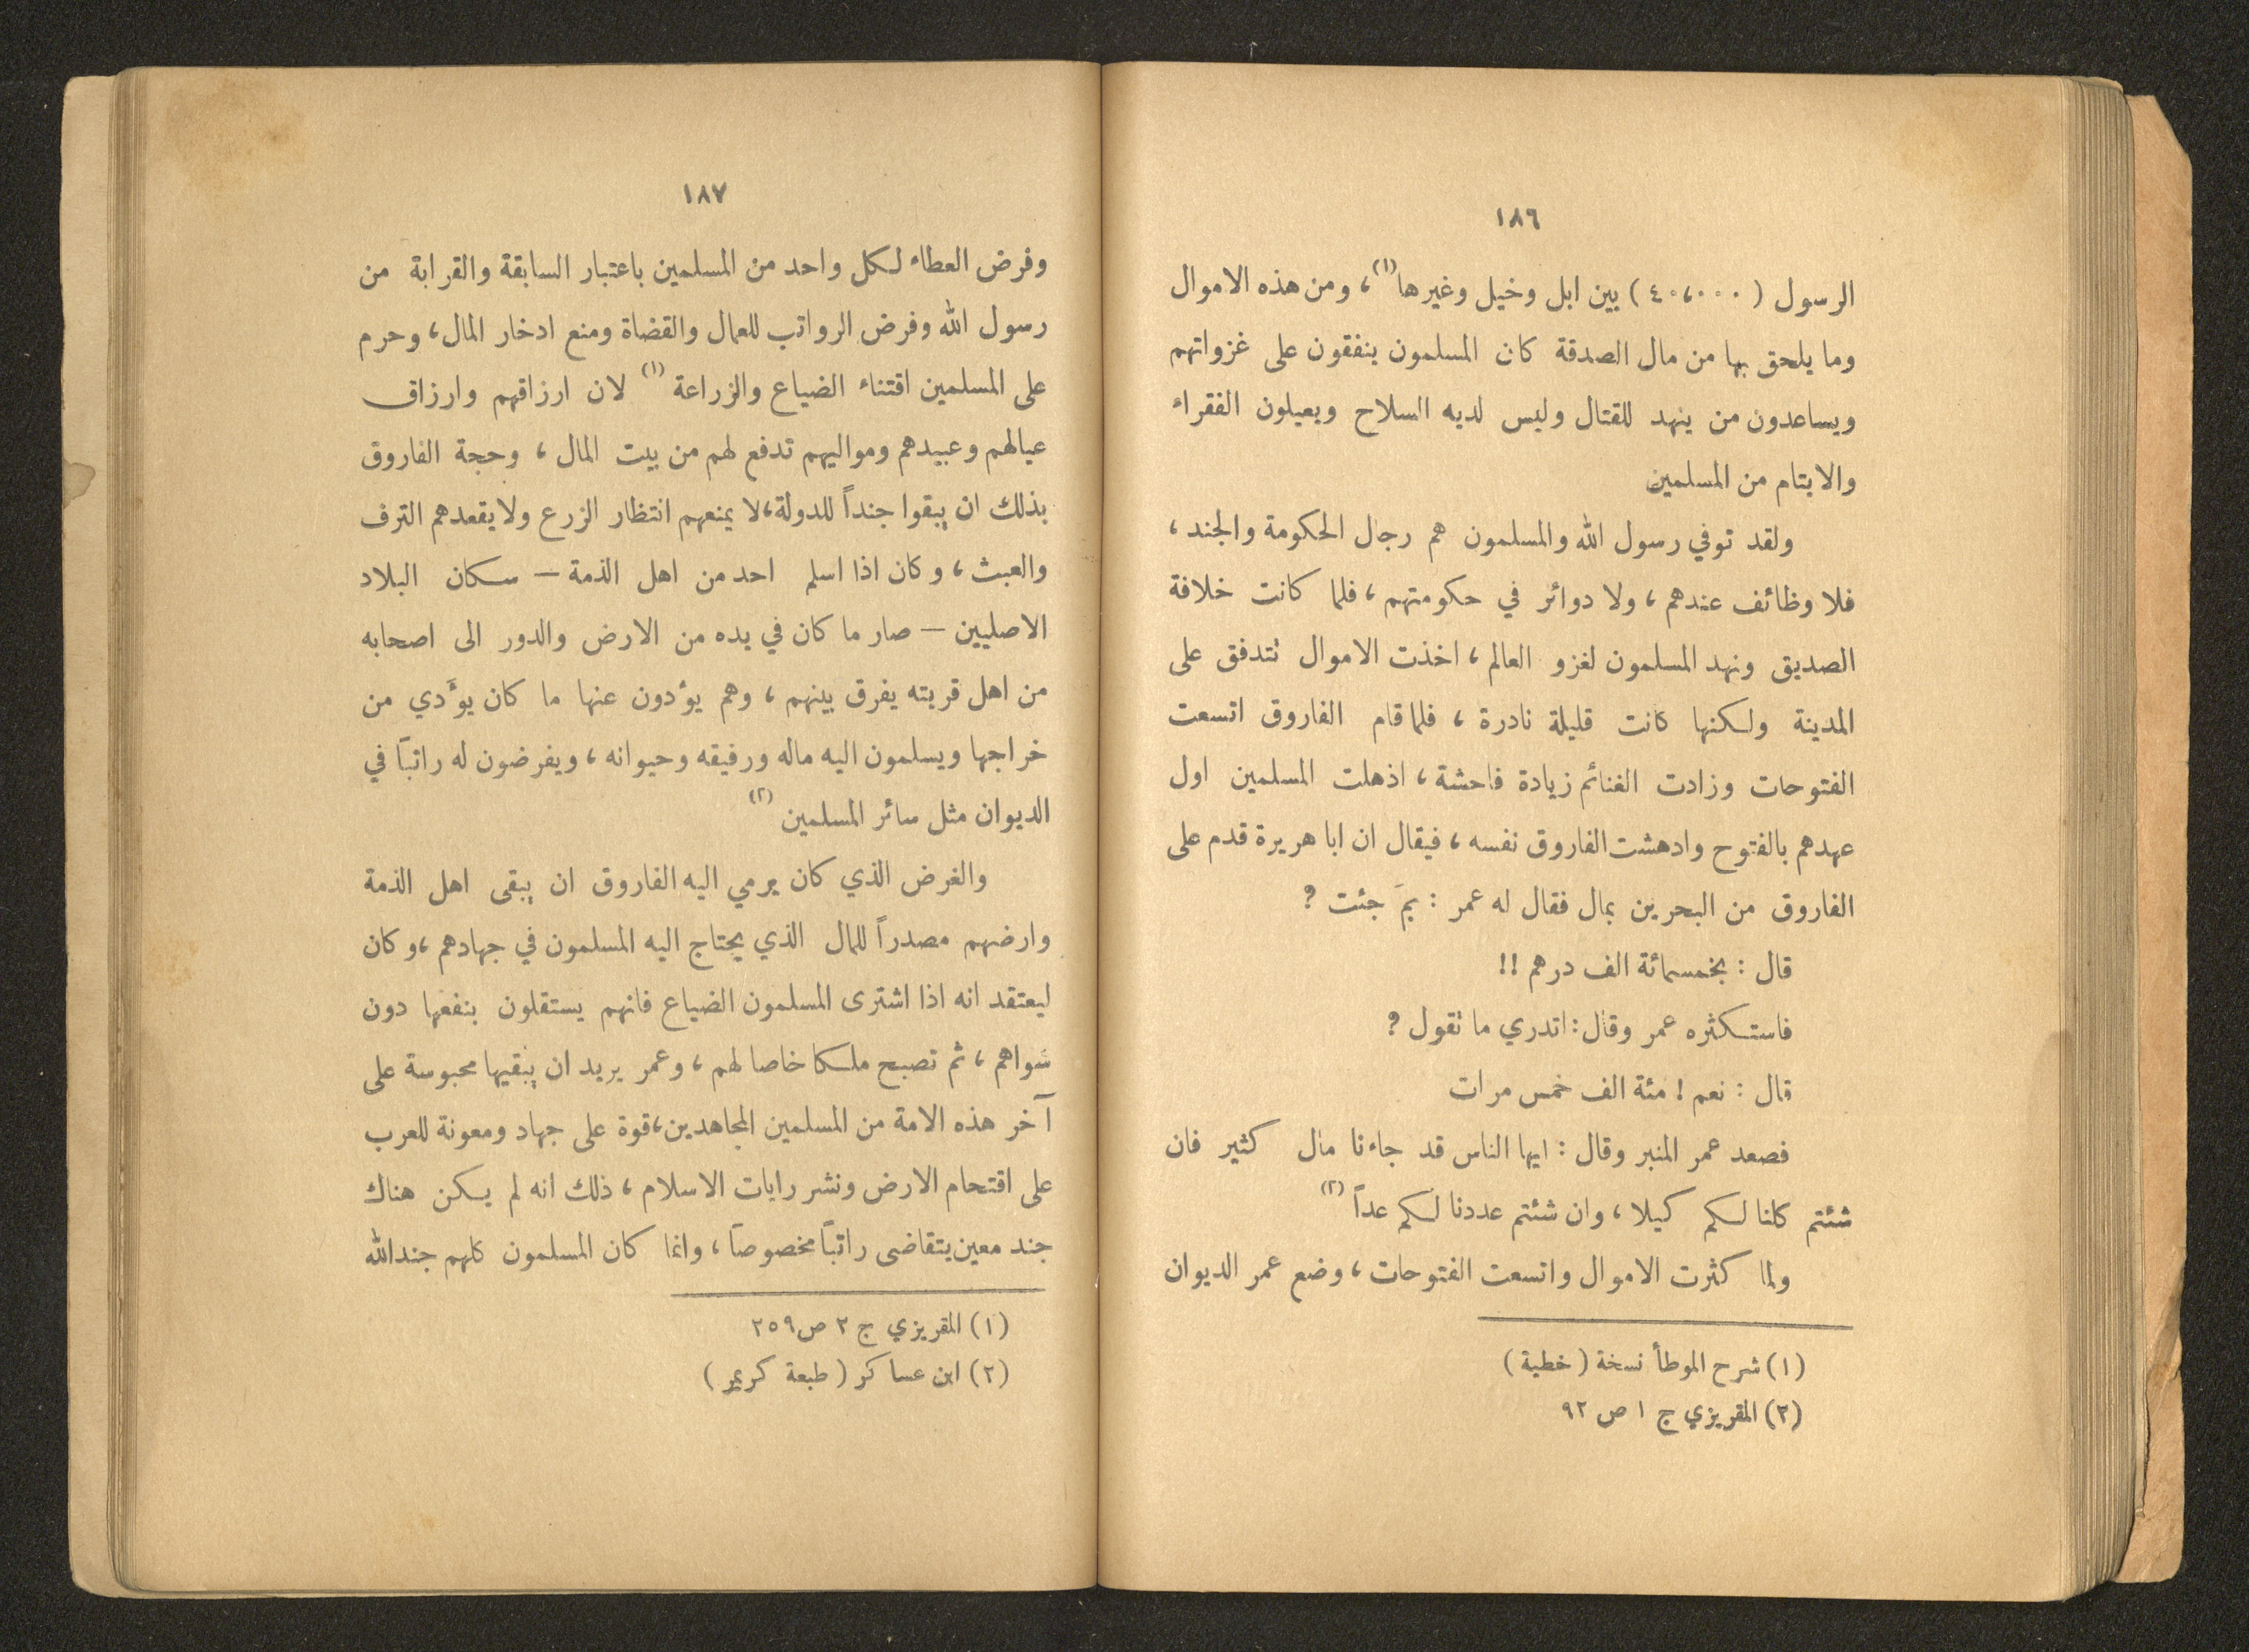 ١٨٦
الرسول (٤٠،٠٠٠) بين ابل وخيل وغيرها(١)، ومن هذه الاموال
وما يلحق بها من مال الصدقة كان المسلمون ينفقون على غزواتهم
ويساعدون من ينهد للقتال وليس لديه السلاح ويعيلون الفقراء
والايتام من المسلمين
ولقد توفي رسول الله والمسلمون هم رجال الحكومة والجند،
فلا وظائف عندهم، ولا دوائر في حكومتهم، فلما كانت خلافة
الصديق ونهد المسلمون لغزو العالم، اخذت الاموال تتدفق على
المدينة ولكنها كانت قليلة نادرة، فلما قام الفاروق اتسعت
الفتوحات وزادت الغنائم زيادة فاحشة، اذهلت المسلمين اول
عهدهم بالفتوح وادهشت الفاروق نفسه، فيقال ان ابا هريرة قدم على
الفاروق من البحرين بمال فقال له عمر : بمَ جئت ?
قال : بخمسمائة الف درهم !!
فاستكثره عمر وقال: اتدري ما تقول ?
قال : نعم ! مئة الف خمس مرات
فصعد عمر المنبر وقال : ايها الناس قد جاءنا مال كثير فان
شئتم كلنا لكم كيلا، وان شئتم عددنا لكم عداً (٢)
ولما كثرت الاموال واتسعت الفتوحات، وضع عمر الديوان
(١) شرح الموطأ نسخة (خطية)
(٢) المقريزي ج ١ ص ٩٢
١٨٧
وفرض العطاء لكل واحد من المسلمين باعتبار السابقة والقرابة من
رسول الله وفرض الرواتب للعمال والقضاة ومنع ادخار المال، وحرم
على المسلمين اقتناء الضياع والزراعة (١) لان ارزاقهم وارزاق
عيالهم وعبيدهم ومواليهم تدفع لهم من بيت المال، وحجة الفاروق
بذلك ان يبقوا جنداً للدولة، لا يمنعهم انتظار الزرع ولا يقعدهم الترف
والعبث، وكان اذا اسلم احد من اهل الذمة — سكان البلاد
الاصليين — صار ما كان في يده من الارض والدور الى اصحابه
من اهل قريته يفرق بينهم، وهم يؤدون عنها ما كان يؤَدي من
خراجها ويسلمون اليه ماله ورفيقه وحيوانه، ويفرضون له راتباً في
الديوان مثل سائر المسلمين (٢)
والغرض الذي كان يرمي اليه الفاروق ان يبقى اهل الذمة
وارضهم مصدراً للمال الذي يحتاج اليه المسلمون في جهادهم، وكان
ليعتقد انه اذا اشترى المسلمون الضياع فانهم يستقلون بنفعها دون
سواهم، ثم تصبح ملكا خاصا لهم، وعمر يريد ان يبقيها محبوسة على
آخر هذه الامة من المسلمين المجاهدين، قوة على جهاد ومعونة للعرب
على اقتحام الارض ونشر رايات الاسلام، ذلك انه لم يكن هناك
جند معين يتقاضى راتباً مخصوصاً، وانما كان المسلمون كلهم جند الله
(١) المقريزي ج ٢ ص ٢٥٩
(٢) ابن عساكر (طبعة كريمر)